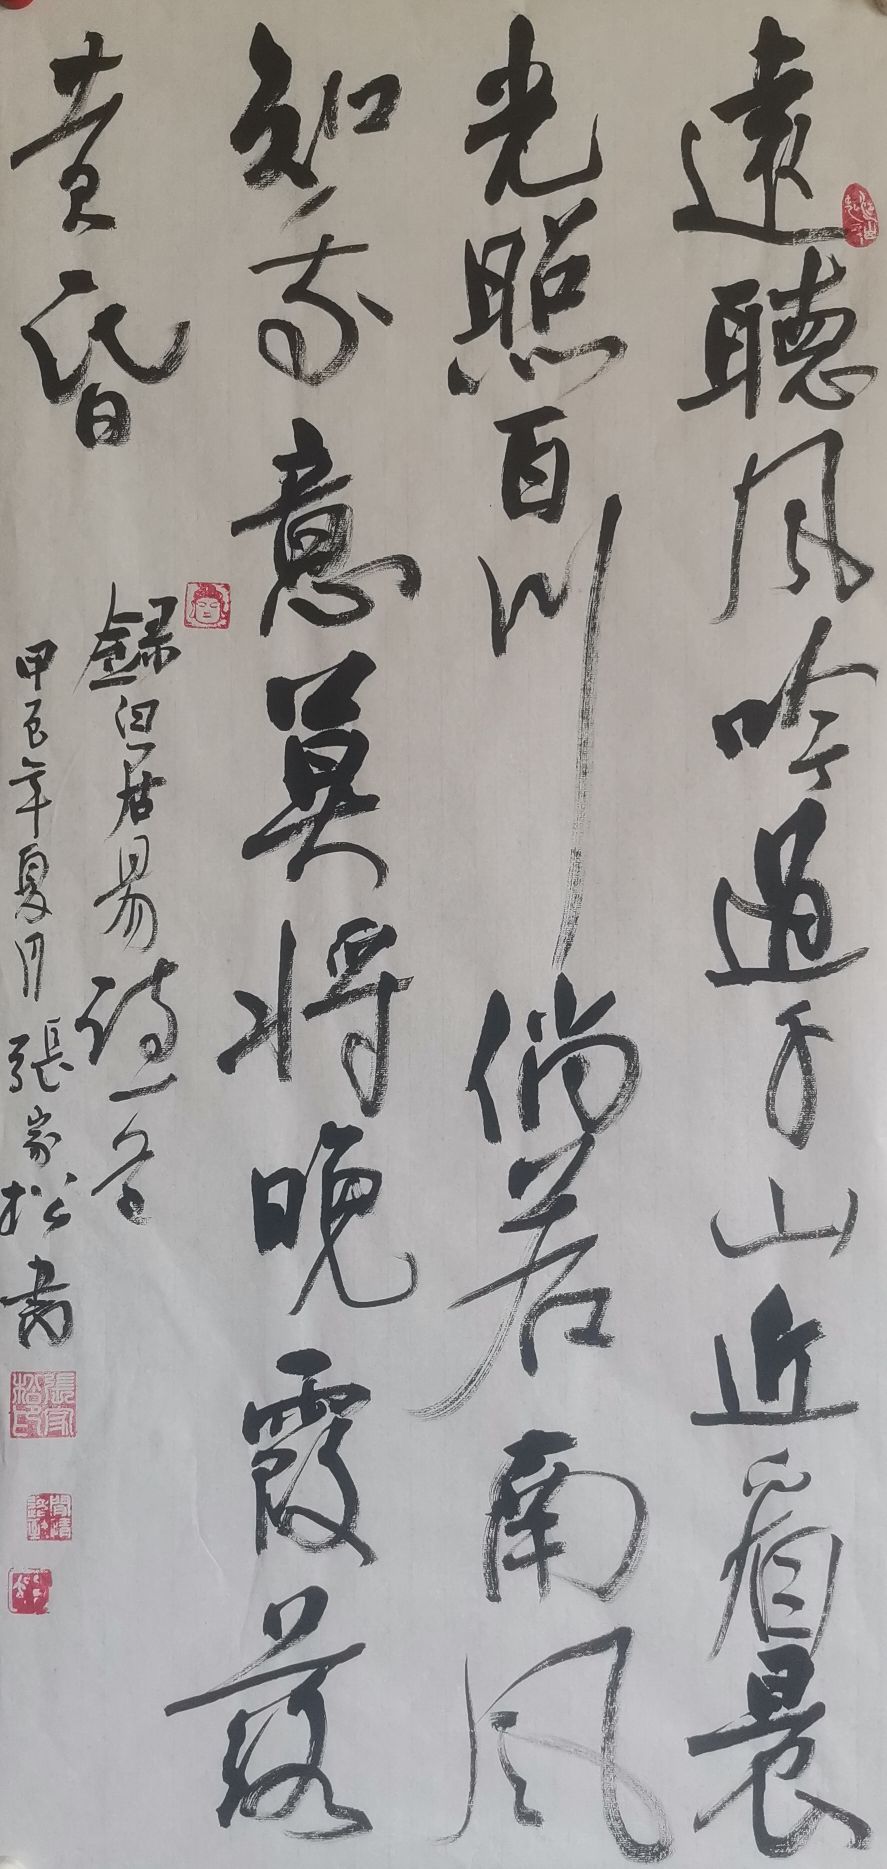 遠聽風吟過千山近看晨
光照百川倘若南風
知我意莫將晚霞落
黄昏
錄白居易詩一首
甲辰年夏月張家松書
張家松印